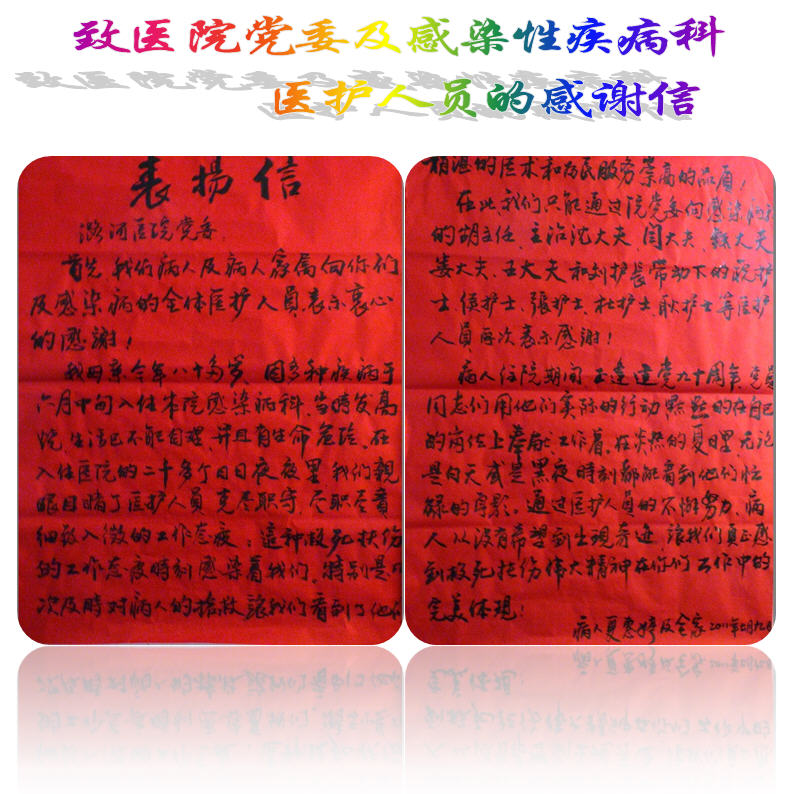 致医院党委及感染性疾病科
医护人员的感谢信
表扬信
潞河医院党委
首先我们病人及病人家属向你们
及感染病的全体医护人员表示衷心
的感謝!
我母亲今年八十多岁、因多种疾病于
六月中旬入住本院感染病科,当時发高
烧,生活已不能自理,并且有生命危险,在
入住医院的二十多个日日夜夜里,我们親
眼目睹了医护人员克尽职守、尽职尽责
细致入微的工作态度;這种救死扶伤
的工作态度時刻感染着我们,特别是
次及時对病人的搶救,讓我们看到了他们
精湛的医术和为民服务崇高的品质!
在此,我们只能通过院党委向感染病科
的胡主任、主治沈大夫、闫大夫、魏大夫
娄大夫、王大夫和刘护長带动下的
士、侯护士、張护士、杜护士、耿护士等医护
人员再次表示感谢!
病人住院期间正逢建党九十周年,党员
同志们用他们实际的行动默默的在自己
的岗位上奉献、工作着,在炎热的夏日里,无论
是白天或是黑夜時刻都能看到他们忙
碌的身影。通过医护人员的不懈努力,病
人从没有希望到出现奇迹,讓我们真正感
到救死扶伤偉大精神在你们工作中的
完美体现!
病人夏惠婷及全家2011年